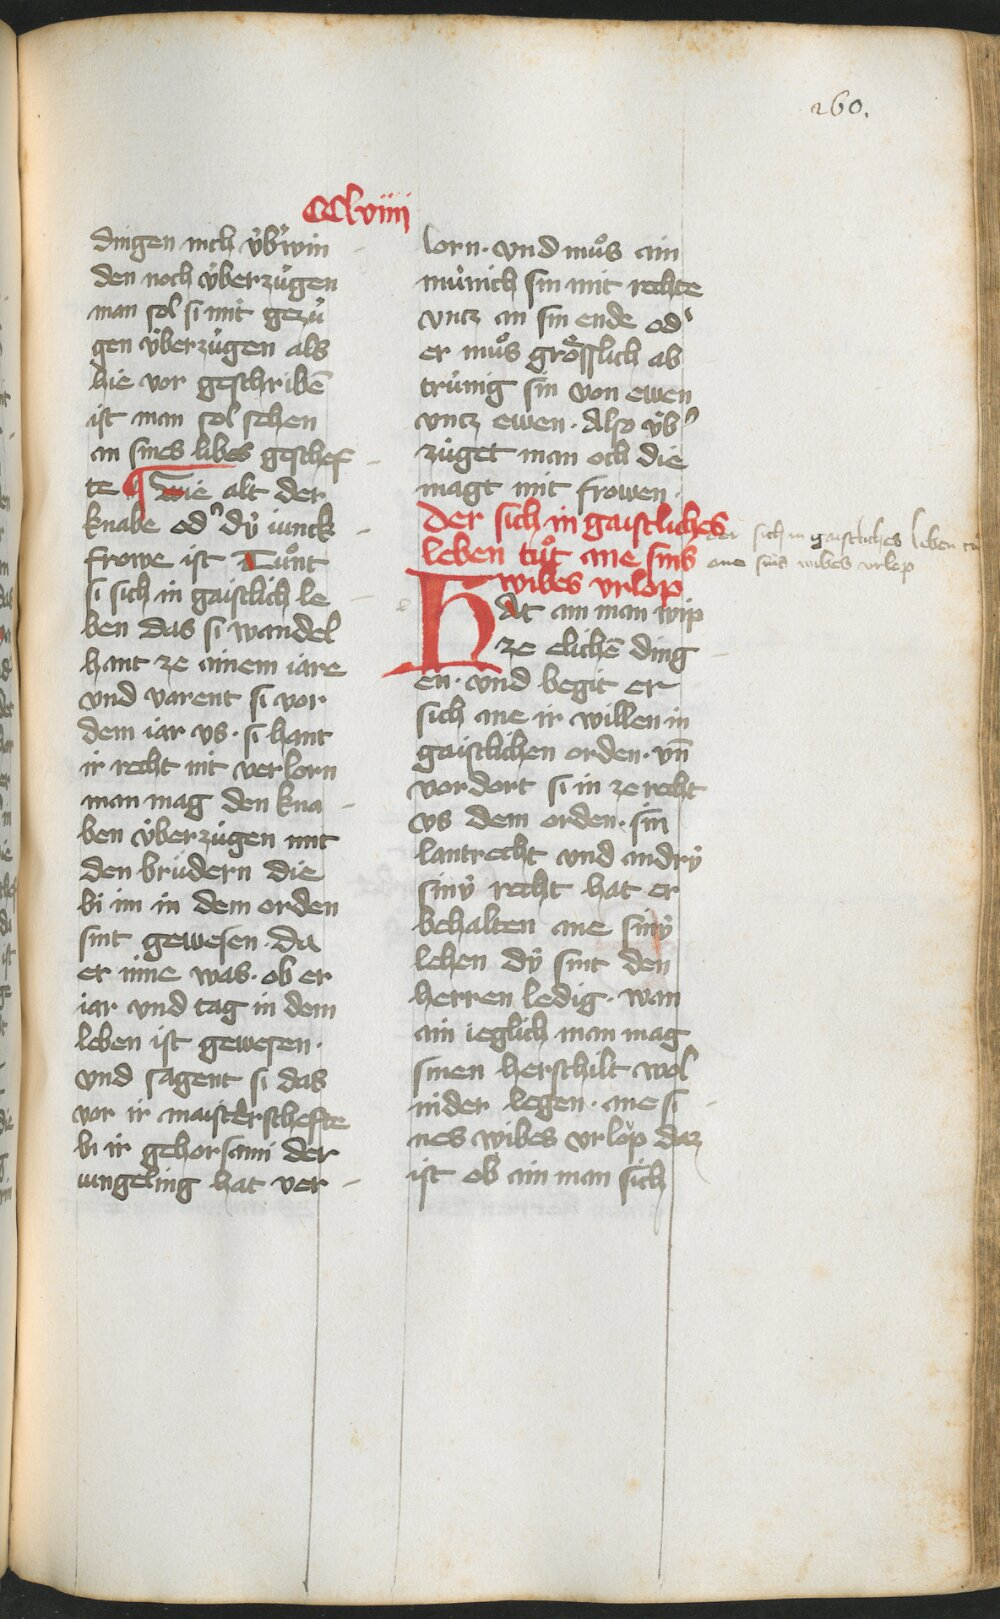 260.
CClviiii
dingen nich v̈b'win
den noch v̈berzügen
man sol si mit gezü
gen v̈berzügen als
hie vor geschribē
ist man sol sehen
an sines libes geschef
te ¶ Wie alt der
knabe od' dü iunck
frowe ist Tuͦnt
si sich in gaistlich le
ben das si wandel
hant ze ainem iare
vnd varent si vor
dem iar vs. si hant
ir recht nit verlorn
man mag den kna
ben v̈berzügen mit
den brüdern die
bi im in dem orden
sint gewesen. da
er inne was. ob er
iar vnd tag in dem
leben ist gewesen.
vnd sagent si das
vor ir maisterschefte
bi ir gehorsami der
iungeling hat ver
lorn. vnd muͦs ain
münich sin mit rechte
vncz an sin ende od'
er muͦs größlich ab
trünig sin von ewen
vncz ewen. Also v̈b'
züget man och die
magt mit frowen.
der sich in gaistliches
leben tuͦt ane sins
wibes vrlop
der sich in gaistliches leben tu
one sins wibes vrlop
HAt ain man wip
ze elichē ding
en. vnd begit er
sich ane ir willen in
gaistlichen orden. vn̄
vordort si in ze recht
vs dem orden. sin
lantrecht vnd andrü
sinü recht hat er
behalten ane sinü
lehen dü sint den
herren ledig. wan
ain ieglich man mag
sinen herschilt wol
nider legen. ane si
nes wibes vrlop daz
ist ob ain man sich